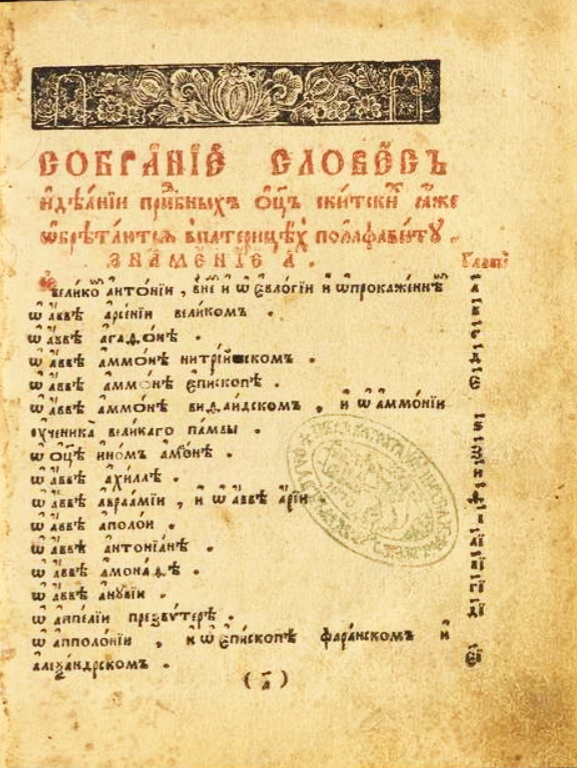 СОБРА́НІЕ СЛОВЕ́СЪ
и҆дѣѧ́нїи прп҇бныхъ ѻ҆ц҃ъ ски́тски҇х ꙗ҆́же
ѡ҆брѣта́ютсѧ впатерицѣ́х поалфави́ту
ЗНАМЕ́НІЕ А҃. Главы̀
ѡ҆вели́ко҇м а҆нтѡ́нїи, внемже и҆ ѡ҆є҆ѵло́гїи и҆ ѡ҆прокаже́ннѣ҇м а҃
ѡ҆а҆́ввѣ а҆рсе́нїи вели́комъ. в҃
ѡ҆а҆́ввѣ а҆гаѳо́нѣ. г҃
ѡ҆а҆́ввѣ а҆ммо́нѣ нитрі́йскомъ. д҃
ѡ҆а҆́ввѣ а҆ммо́нѣ є҆пи́скопѣ. є҃
ѡ҆а҆́ввѣ а҆ммо́нѣ виѳаи́дскомъ, и҆ ѡ҆а҆ммо́нїи
ᲂу҆ченика̀ вели́кагѡ па́мвы. ѕ҃
ѡ҆ѻ҆ц҃ѣ и҆но́мъ а҆мо́нѣ. з҃
ѡ҆а҆́ввѣ а҆хі́ллѣ. и҃
ѡ҆а҆́ввѣ а҆враа́мїи, и҆ ѡ҆а҆́ввѣ а҆́рїи. ѳ҃
ѡ҆а҆́ввѣ а҆поло́и. і҃
ѡ҆а҆́ввѣ а҆нтонїа́нѣ. а҃і
ѡ҆а҆́ввѣ а҆мона́ѳѣ. в҃і
ѡ҆а҆́ввѣ а҆нꙋ́вїи. г҃і
ѡ҆а҆ппе́лїи презвѵ́терѣ. д҃і
ѡ҆а҆пполо́нїи, и҆ ѡ҆є҆пи́скопѣ фара́нскомъ и҆
а҆леѯа́ндрскомъ. є҃і
(а҃)